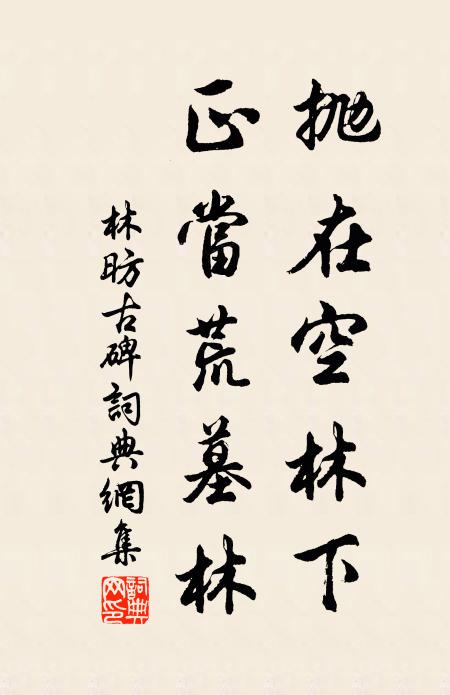 抛在空林下
正當荒墓林
林昉古碑詞典網集
詞典網印